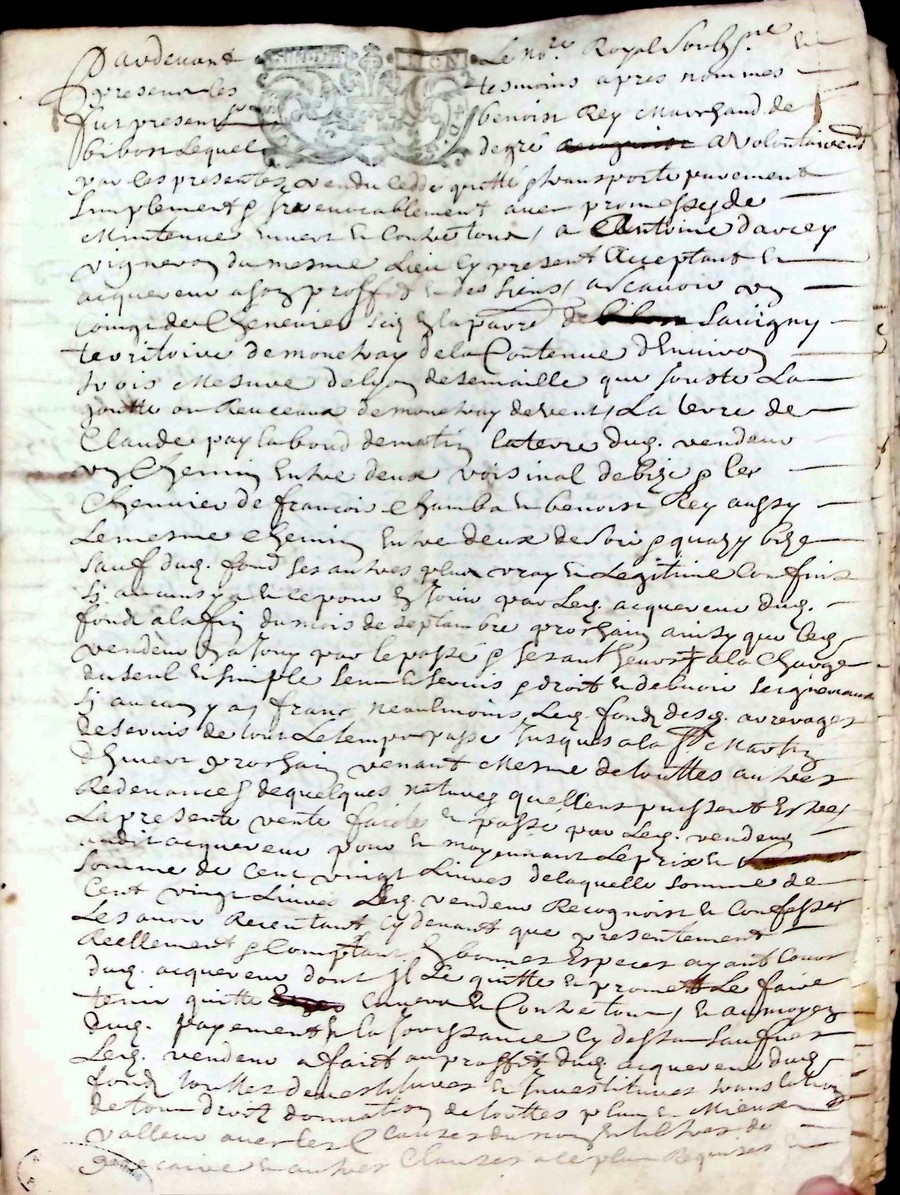 Pardevant Le No.re Royal Soubs.ne et
presens les tesmoins apres nommes
fut present benoist Rey Marchand de
bibost Lequel de gre a Volontairem.t
par les presentes vendu cedde quitté & transporté purement
simplement & irrevocablement avec promesse de
Maintenue envers et Contre tous, a Antoine darcey
vigneron du mesme Lieu Cy present Acceptant et
acquereur a son proffit et des siens, a scavoir un
Coing de Chenevier de Savigny
territoire de monctroy de la Contenue d'Environ
trois Mesure de semaille que jouste La
goutte ou Ruceaux de monctroy de vent, La terre de
Claude pay la bond de matin la terre dud. vendeur
un Chemin Entre deux voisinal de bize & les
Chenevier de francois Chamba et benoist Rey aussy
Le mesme Chemin Entre deux de soir & quazy bize
sauf dud. fond ses autres plus vray et Legitime Confins
sy aucuns y a et ce pour En jouir par Led. acquereur dud.
fond a la fin du mois de septembre prochain ainsy que led.
vendeur En a jouy par le passé & ses autheurs a la Charge
du seul et simple servis & droit et debvoir seigneuriaux
sy aucun y a, franc neaulmoins Led. fond desd. arrerages
de servis de tout Le temps passe jusques a la St Martin
d'hiver prochain venant Mesme de touttes autres
Redevances de quelques natures quelles puissent Estre,
La presente vente faicte et passé par Led. vendeur
audit acquereur pour et moyennant Le prix et
somme de Cent vingt Livres de laquelle somme de
Cent vingt Livres Led. vendeur Recognoist et Confesse
Les avoir Receu tant Cy devant que presentement
Reellement & Comptant En bonnes Especes ayant Cours
dud. acquereur dont jl Le quitte et promet Le faire
tenir quitte Envers et Contre tous, et au moyen
dud. payement et la jouissance Cy dessus
Led. vendeur a faict au proffit dud. acquereur dud.
fond touttes devestitures et Investitures translation
de tous droit donnation de touttes plus et Mieux
valleur avec les Clauses
et autres Clauses a ce plus Requises et